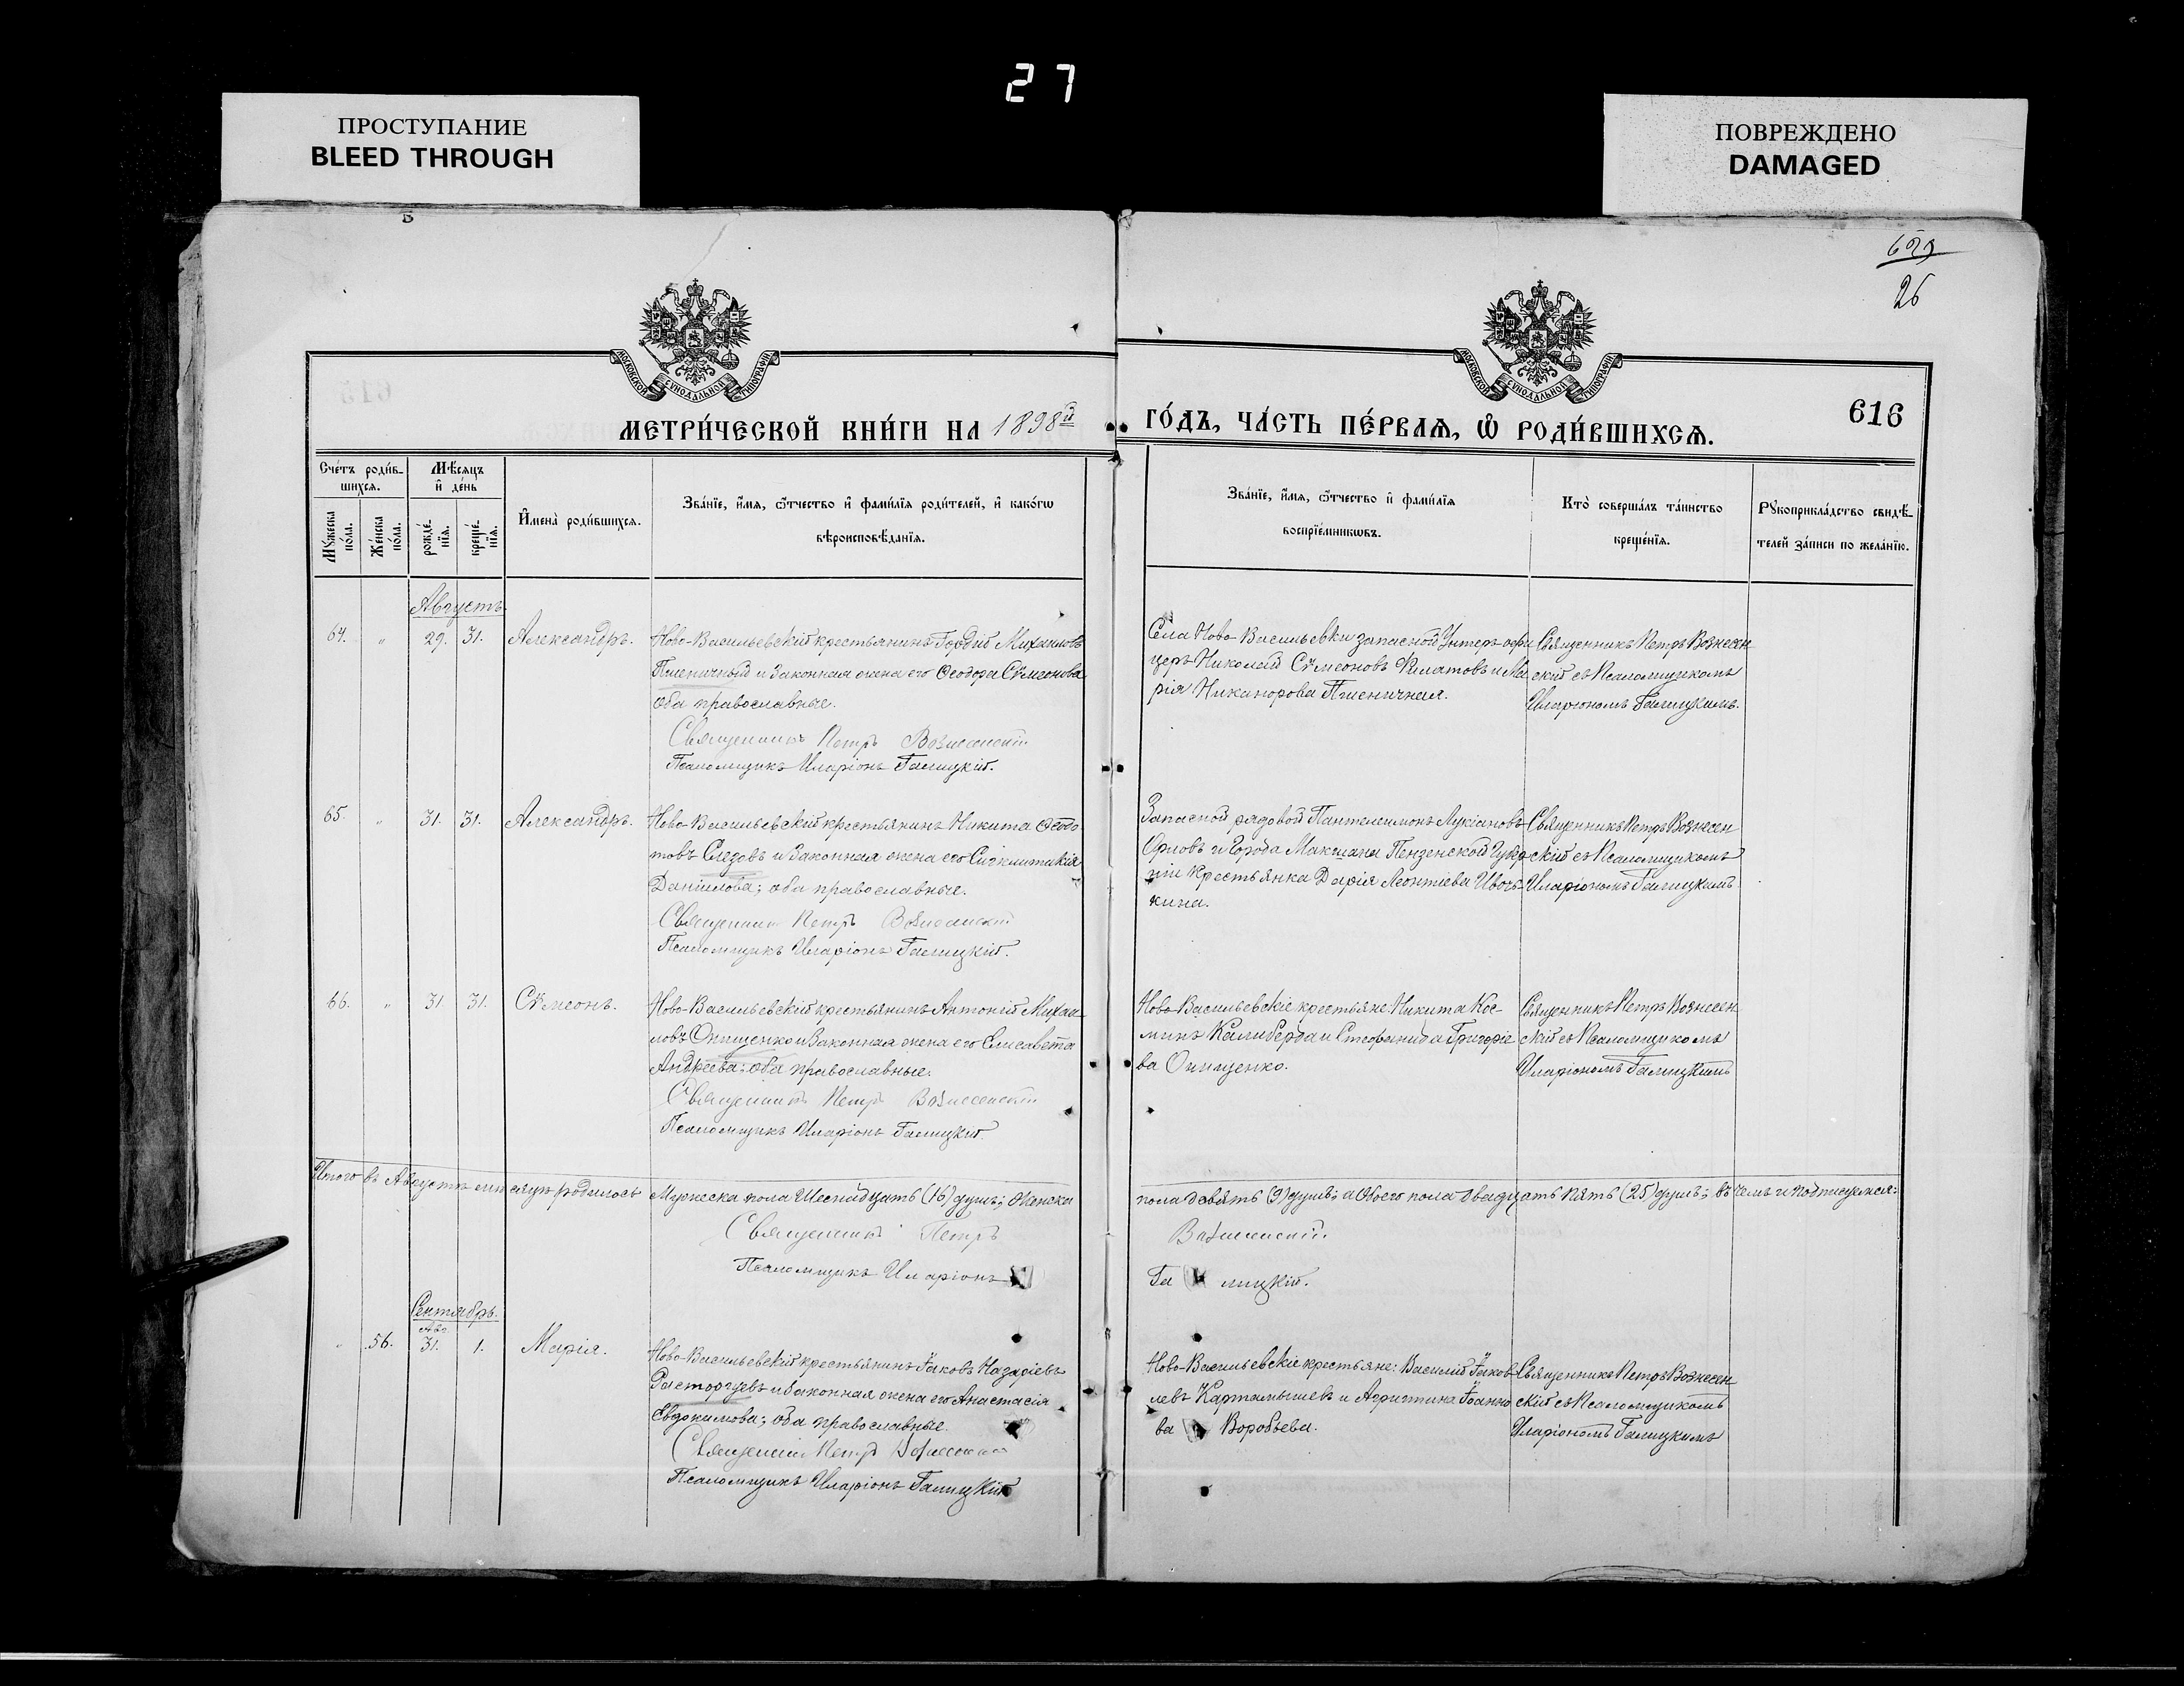 27
ПРОСТУПАНИЕ
BLEED THROUGH
ПОВРЕЖДЕНО
DAMAGED
26
616
МЕТРИ́ЧЕСКОЙ КНИ́ГИ НА 1898й
ГО́ДЪ, ЧА́СТЬ ПЕ́РВАѦ, Ѡ҆ РОДИ́ВШИХСѦ.
Сче́тъ роди́в-
шихсѧ.
Мѣ́сяцъ
и҆ де́нь
Мꙋ́жеска по́ла.
Же́нска по́ла.
рожде́нїѧ.
креще́нїѧ.
И҆мена̀ роди́вшихсѧ.
Зва́нїе, и҆́мѧ, ѻ҆́тчество и҆ фами́лїѧ роди́телей, и҆ како́гѡ
вѣроисповѣ́данїѧ.
Зва́нїе, и҆́мѧ, ѻ҆́тчество и҆ фами́лїѧ
воспрїе́мникѡвъ.
Кто̀ соверша́лъ та́инство
креще́нїѧ.
Рꙋкоприкла́дство свидѣ́-
телей за́писи по жела́нїю.
Августъ
64. " 29. 31. Александръ.
Ново-Васильевскій крестьянинъ Гордій Михаиловъ
Пшеничный и законная жена его Ѳеодора Сѵмеонова
оба православные.
Священникъ Петръ Вознесенскій
Псаломщикъ Иларіонъ Галицкій.
Села Ново-Васильевки запасной Унтеръ-офи
церъ Николай Сѵмеоновъ Филатовъ и Ма
рія Никанорова Пшеничная.
Священникъ Петръ Вознесен
скій съ Псаломщикомъ
Иларіономъ Галицкимъ.
65. " 31. 31. Александръ.
Ново-Васильевскій крестьянинъ Никита Ѳеодо
товъ Слезовъ и законная жена его Сигклитикія
Даніилова; оба православные.
Священникъ Петръ Вознесенскій
Псаломщикъ Иларіонъ Галицкій.
Запасной рядовой Пантелеимонъ Лукіановъ
Орловъ и Города Макшана Пензенской Губер
ніи Крестьянка Дарія Леонтіева Ивоч-
кина.
Священникъ Петръ Вознесен
скій съ Псаломщикомъ
Иларіономъ Галицкимъ
66. " 31. 31. Сѵмеонъ.
Ново-Васильевскій крестьянинъ Антоній Михаи
ловъ Онищенко и законная жена его Елисавета
Андреева; оба православные.
Священникъ Петръ Вознесенскій
Псаломщикъ Иларіонъ Галицкій.
Ново-Васильевскіе крестьяне: Никита Кос-
минъ Калиберда и Стефанида Григорье
ва Онищенко.
Священникъ Петръ Вознесен
скій съ Псаломщикомъ
Иларіономъ Галицкимъ
Итого въ Августѣ мѣсяцѣ родилось Мужеска пола Шеснадцать (16) душъ; Женска
пола девять (9) душъ; а Обоего пола двадцать пять (25) душъ; въ чемъ и подписуемся:
Священникъ Петръ Вознесенскій
Псаломщикъ Иларіонъ Галицкій.
Сентябрь.
Авг.
" 56. 31. 1. Марія.
Ново-Васильевскій крестьянинъ Іаковъ Назаріевъ
Расторгуевъ и законная жена его Анастасія
Евдокимова; оба православные.
Священникъ Петръ Вознесенскій
Псаломщикъ Иларіонъ Галицкій
Ново-Васильевскіе крестьяне: Василій Іаков
левъ Картамышевъ и Агрипина Іоанно
ва Воробьева.
Священникъ Петръ Вознесен
скій съ Псаломщикомъ
Иларіономъ Галицкимъ